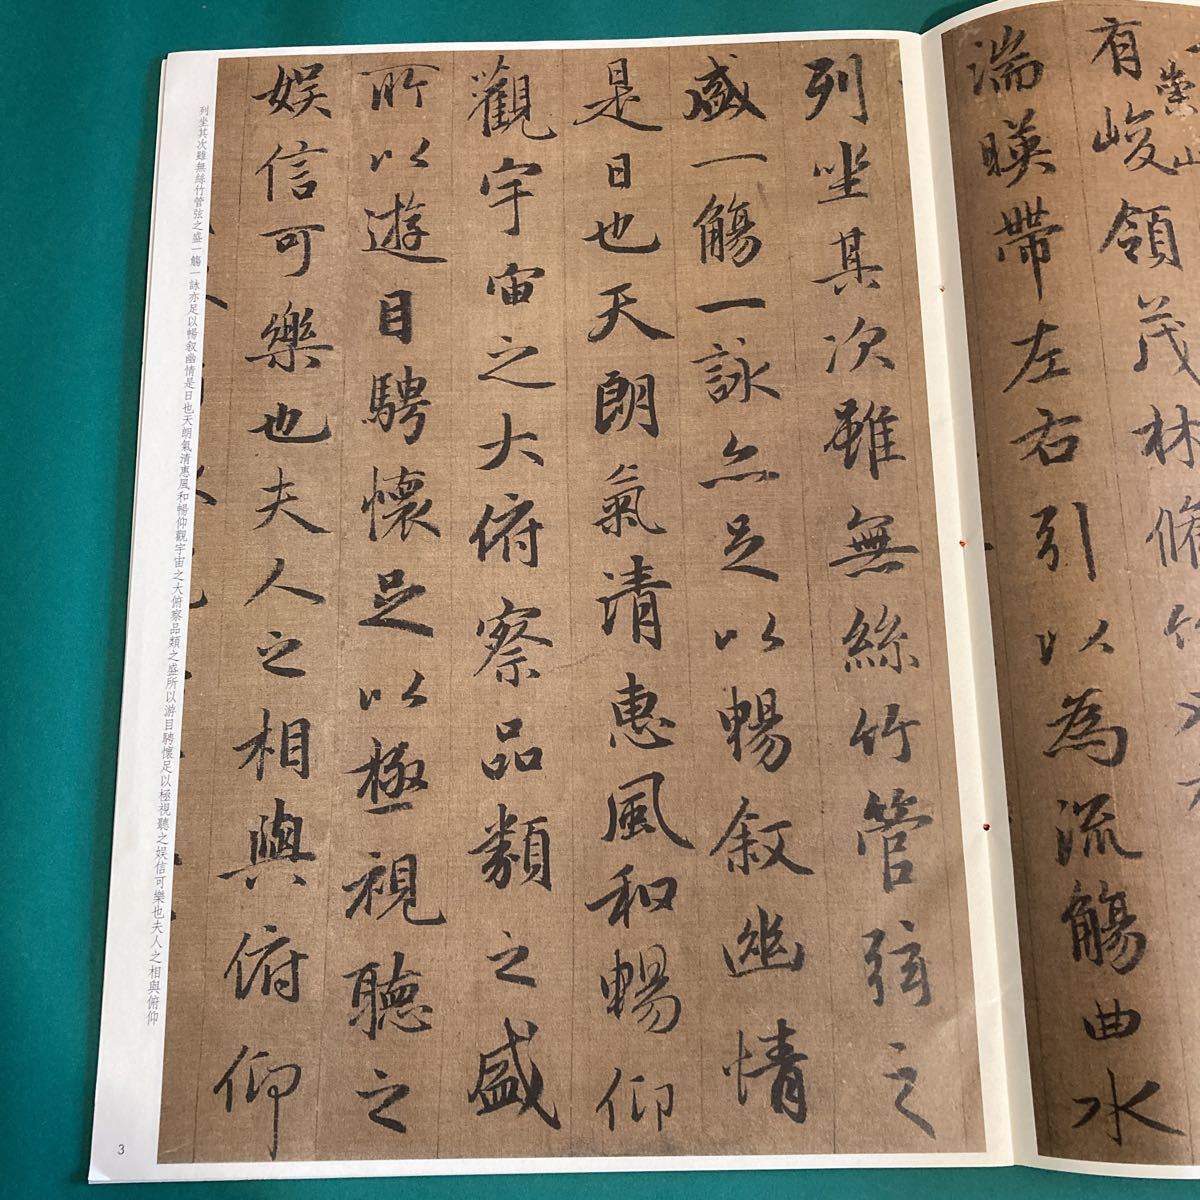 崇山
有峻領茂林脩竹
湍暎帶左右引以為流觴曲水
列坐其次雖無絲竹管弦之
盛一觴一詠亦足以暢叙幽情
是日也天朗氣清惠風和暢仰
觀宇宙之大俯察品類之盛
所以遊目騁懷足以極視聽之
娱信可樂也夫人之相與俯仰
列坐其次雖無絲竹管弦之盛一觴一詠亦足以暢叙幽情是日也天朗氣清惠風和暢仰觀宇宙之大俯察品類之盛所以游目騁懷足以極視聽之娱信可樂也夫人之相與俯仰
3